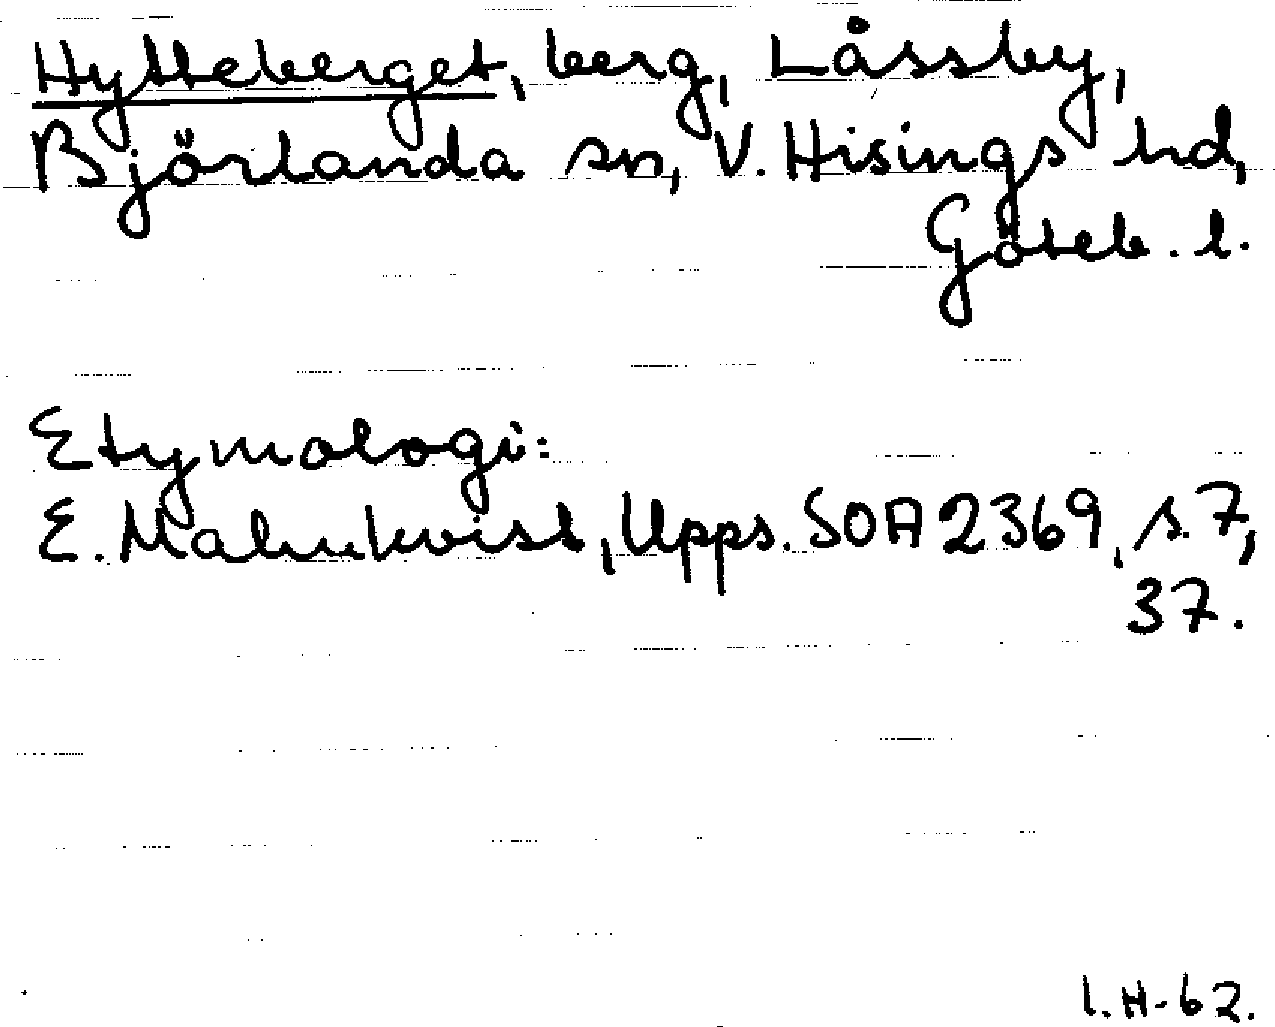 Hytteberget, berg, Låssby,
Björlanda sn, V. Hisings hd,
Göteb. l.
Etymologi:
E. Malmkvist, Upps. SOA 2369, s. 7,
37.
I.H-62.